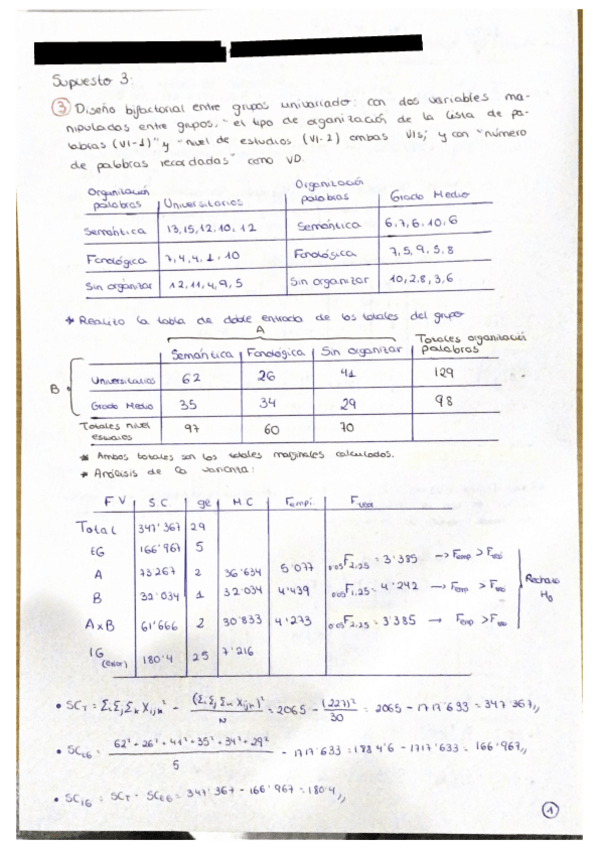 Supuesto 3:
③ Diseño bifactorial entre grupos univariado: con dos variables ma-
nipuladas entre grupos, "el tipo de organización de la lista de pa-
labras (VI-1)" y "nivel de estudios (VI-2) ambas VIs; y con "número
de palabras recordadas" como VD.
Organización palabras | Universitarios | Organización palabras | Grado Medio
Semántica | 13, 15, 12, 10, 12 | Semántica | 6, 7, 6, 10, 6
Fonológica | 7, 4, 4, 1, 10 | Fonológica | 7, 5, 9, 5, 8
Sin organizar | 12, 11, 4, 9, 5 | Sin organizar | 10, 2, 8, 3, 6
* Realizo la tabla de doble entrada de los totales del grupo
A
Semántica | Fonológica | Sin organizar | Totales organización palabras
B
Universitarios | 62 | 26 | 41 | 129
Grado Medio | 35 | 34 | 29 | 98
Totales nivel estudios | 97 | 60 | 70
* Ambos totales son los totales marginales calculados.
* Análisis de la varianza:
FV | SC | ge | MC | Fempi. |
Total | 347'367 | 29
EG | 166'967 | 5
A | 73'267 | 2 | 36'634 | 5'077 | 0.05F2,25 = 3'385 → Femp > Fteo
B | 32'034 | 1 | 32'034 | 4'439 | 0.05F1,25 = 4'242 → Femp > Fteo
AxB | 61'666 | 2 | 30'833 | 4'273 | 0.05F2,25 = 3'385 → Femp > Fteo
Rechazo H0
IG (error) | 180'4 | 25 | 7'216
• SCT = ΣiΣjΣk Xijk² - (ΣiΣjΣk Xijk)² / N = 2065 - (227)² / 30 = 2065 - 1717'633 = 347'367,,
• SCEG = 62² + 26² + 41² + 35² + 34² + 29² / 5 - 1717'633 = 1884'6 - 1717'633 = 166'967,,
• SCIG = SCT - SCEG = 347'367 - 166'967 = 180'4,,
①